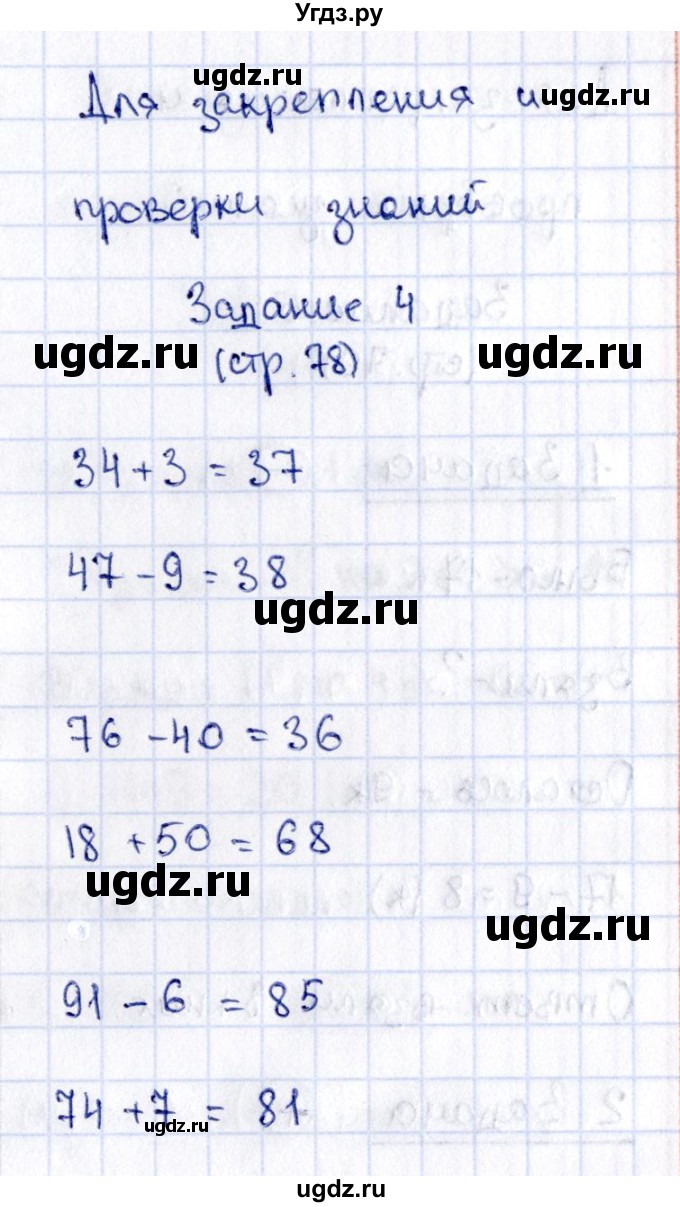 Угдз.ру
ugdz.ru
Для закрепления и ugdz.ru
проверки знаний
Задание 4
ugdz.ru (стр. 78) ugdz.ru
34 + 3 = 37
47 - 9 = 38
ugdz.ru
76 - 40 = 36
18 + 50 = 68
ugdz.ru
ugdz.ru
91 - 6 = 85
74 + 7 = 81
ugdz.ru
ugdz.ru